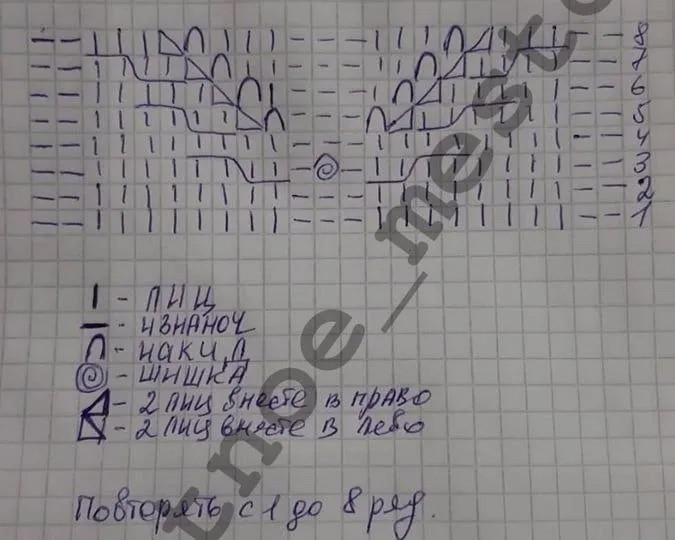 8
7
6
5
4
3
2
1
| - ЛИЦ
— - ИЗНАНОЧ
∩ - НАКИД
- ШИШКА
- 2 ЛИЦ вместе в право
- 2 ЛИЦ вместе в лево
Повторять с 1 до 8 ряд.